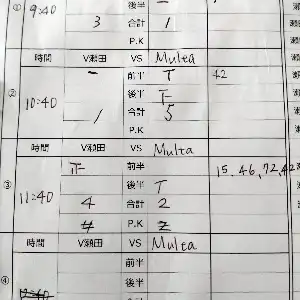 ① 9:40 後半 一
3 合計 1
P.K
時間 V瀬田 VS Multa
一 前半 T 42
② 10:40 後半 下
1 合計 5
P.K
時間 V瀬田 VS Multa
正 前半 15.46,72,42
③ 11:40 後半 T
4 合計 2
4 P.K 2
時間 V瀬田 VS Multa
前半
④ 後半
合計